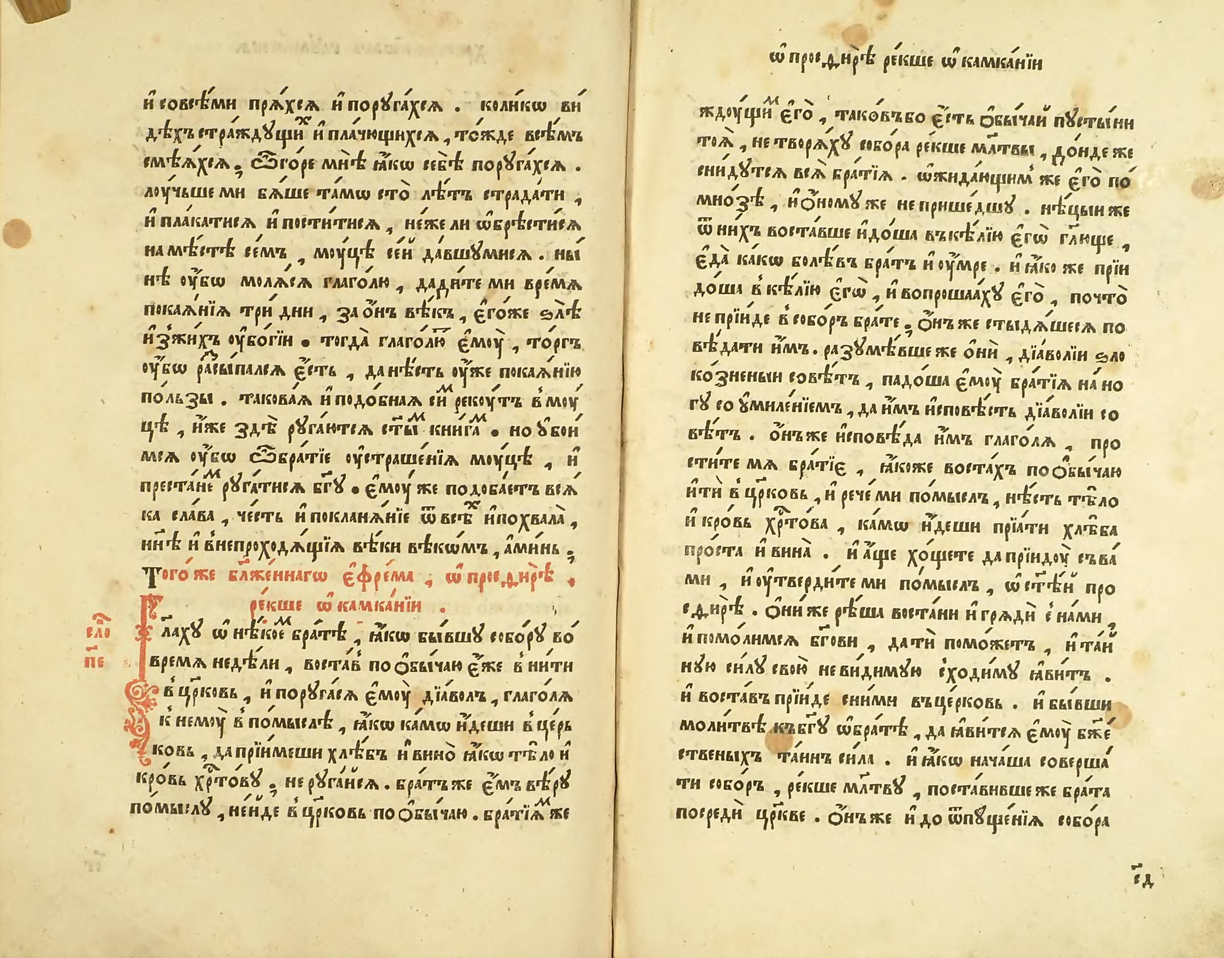 и҆ совсѣ́ми прѧ́хсѧ и҆ порꙋга́хсѧ . коли́кѡ ви
дѣ́хъ стра́ждꙋщиⷯ и҆ пла́чющихсѧ , то́жде всѣ́мъ
смѣѧ́хсѧ . Ѽгоре мнѣ̀ ꙗ҆́кѡ себѣ̀ порꙋга́хсѧ .
лоу́чьше ми бѧ́ше та́мѡ сто̀ лѣ́тъ страда́ти ,
и҆ пла́катисѧ и҆ пости́тисѧ , не́же ли ѡ҆брѣсти́сѧ
на мѣ́стѣ се́мъ , моу́цѣ се́й да́вшꙋмисѧ . ны́
нѣ оу҆́бѡ молѧ́сѧ глаго́лю , дади́те ми вре́мѧ
покаѧ́нїѧ трѝ дни , за ѻ҆́нъ вѣ́къ , є҆го́же ѕлѣ̀
и҆зжи́хъ оу҆бо́гїи . тогда̀ глаго́лютⷭ є҆моу̀ , то́ргъ
оу҆́бѡ разсы́палсѧ є҆́сть , да нѣ́сть оу҆же покаѧ́нїю
по́льзы . такова́ѧ и҆ подо́бнаѧ си́ⷨ реко́утъ в̾ моу́
цѣ , и҆́же здѣ̀ рꙋга́ютсѧ ст҃ы́ⷨ кни́гаⷨ . но ᲂу҆бои́
мсѧ оу҆́бѡ Ѽбра́тїе оу҆страше́нїѧ моу́цѣ , и҆
преста́неⷨ рꙋга́тисѧ бг҃ꙋ . є҆моу́ же подоба́етъ всѧ́
ка сла́ва , че́сть и҆ поклана́нїе ѿ всѣ́ⷯ и҆ похвала̀ ,
нн҃ѣ и҆ в̾непроходѧ́щїѧ вѣ́ки вѣкѡ́мъ , а҆ми́нь .
Того́ же бл҃же́ннагѡ є҆фре́ма , ѡ҆ просѳирѣ̀ .
ре́кше ѡ҆ камка́нїи .
сло́
пе҃
Глахꙋ ѡ҆ нѣ́коеⷨ бра́тѣ , ꙗ҆́кѡ бы́вшꙋ собо́рꙋ во
вре́мѧ недѣ́ли , воста́в̾ по ѻ҆бы́чаю є҆́же в̾нити
в̾ цр҃ковь , и҆ порꙋга́сѧ є҆моу̀ дїа́волъ , глаго́лѧ
к̾ немоу̀ в̾ по́мыслѣ , ꙗ҆́кѡ ка́мѡ и҆́деши в̾ це́рь
ковь , да прїи́меши хлѣ́бъ и҆ вино̀ ꙗ҆́кѡ тѣ́ло и҆
кро́вь хр҃то́вꙋ . не рꙋга́йсѧ . бра́тъ же є҆́мъ вѣ́рꙋ
по́мыслꙋ , не и҆́де в̾ цр҃ковь по ѻ҆бы́чаю . бра́тїѧⷨ же
ѡ҆ просѳирѣ̀ ре́кше ѡ҆ камка́нїи
ждоу́щиⷨ є҆го̀ , тако́въбо є҆́сть ѻ҆бы́чай пꙋсты́ни
тоѧ̀ , не творѧ́хꙋ собо́ра ре́кше мл҃твы , до́нде же
сни́дꙋтсѧ всѧ̀ бра́тїѧ . ѡ҆жида́ющим̾ же є҆го̀ по
мно́зѣ , и҆ ѻ҆́номꙋ же не прише́дшꙋ . нѣ́цыи же
ѿ ни́хъ воста́вше и҆до́ша въ кѣ́лїю є҆гѡ̀ гл҃юще ,
є҆да̀ ка́кѡ болѣ́въ бра́тъ и҆ оу҆́мре . и҆ ꙗ҆́ко же прїи
до́ша в̾ кѣ́лїю є҆гѡ̀ , и҆ вопроша́ахꙋ є҆го̀ , почто̀
не прїи́де в̾ собо́ръ бра́те . ѻ҆́нъ же стыдѧ́шесѧ по
вѣ́дати и҆̀мъ . разꙋмѣ́вше же ѻ҆нѝ , дїа́волїи ѕло
ко́зненыи совѣ́тъ , падо́ша є҆моу̀ бра́тїѧ на́ но
гꙋ со ᲂу҆миле́нїемъ , да и҆́мъ и҆сповѣ́сть дїа́волїи со
вѣ́тъ . ѻ҆́нъ же и҆сповѣ́да и҆́мъ глаго́лѧ , про
сти́те мѧ̀ бра́тїє , ꙗ҆́коже воста́хъ по ѻ҆бы́чаю
и҆тѝ в̾ цр҃ковь , и҆ рече́ ми по́мыслъ , нѣ́сть тѣ́ло
и҆ кро́вь хр҃то́ва , ка́мѡ и҆́деши прїа́ти хлѣ́ба
про́ста и҆ вина̀ . и҆ а҆́ще хо́щете да прїидоу̀ с̾ ва́
ми , и҆ оу҆тверди́те ми по́мыслъ , ѡ҆ ст҃ѣ́й про
сѳирѣ̀ . ѻ҆ни́ же рѣ́ша воста́ни и҆ грѧдѝ с̾ на́ми ,
и҆ помо́лимсѧ бг҃ови , да тѝ помо́жетъ , и҆ та́й
нꙋю си́лꙋ свою̀ не ви́димꙋю сходи́мꙋ ꙗ҆ви́тъ .
и҆ воста́въ прїи́де сни́ми въ це́рковь . и҆ бы́вши
моли́твѣ къ бг҃ꙋ ѡ҆ бра́тѣ , да ꙗ҆ви́тсѧ є҆моу̀ бж҃е́
ственыхъ та́инъ си́ла . и҆ ꙗ҆́кѡ нача́ша соверша́
ти собо́ръ , ре́кше мл҃твꙋ , поста́вивше же бра́та
посредѝ цр҃кве . ѻ҆́нъ же и҆ до ѿпꙋще́нїѧ собо́ра
с҃д